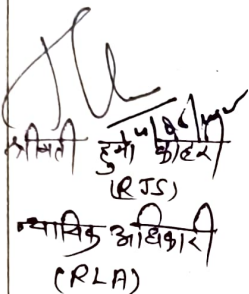 श्रीमती हुमा कोहरी
(RJS)
न्यायिक अधिकारी
(RLA)